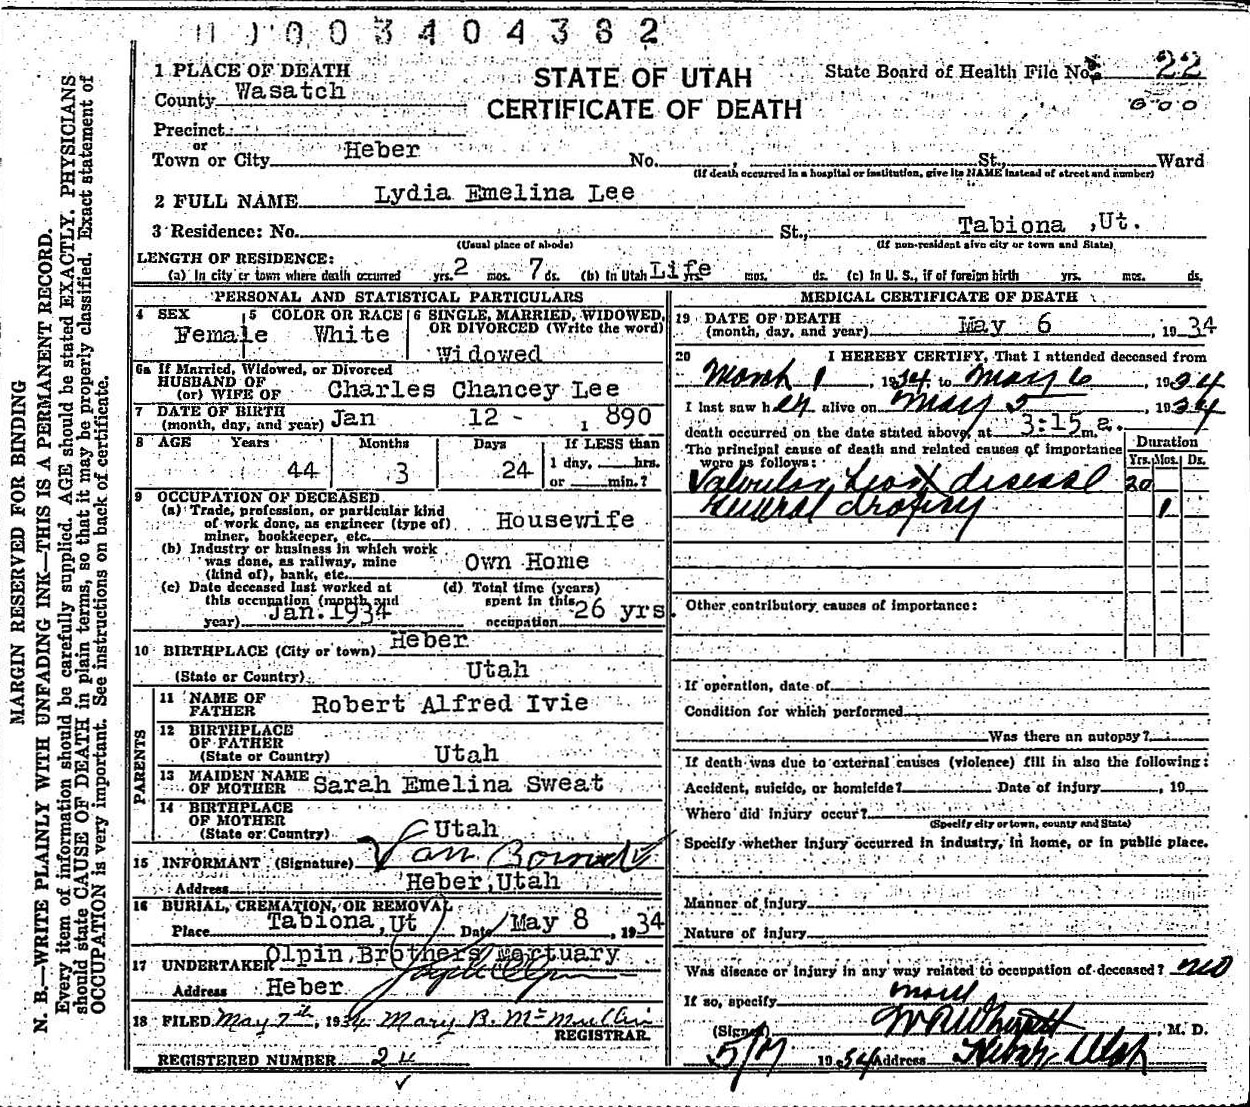 0003404382
1 PLACE OF DEATH
STATE OF UTAH
CERTIFICATE OF DEATH
State Board of Health File No. 22
600
County Wasatch
Precinct
or
Town or City Heber No. , St., Ward
(If death occurred in a hospital or institution, give its NAME instead of street and number)
2 FULL NAME Lydia Emelina Lee
3 Residence: No. St., Tabiona ,Ut.
(Usual place of abode) (If non-resident give city or town and State)
LENGTH OF RESIDENCE:
(a) In city or town where death occurred yrs. 2 mos. 7 ds. (b) In Utah Life yrs. mos. ds. (c) In U. S., if of foreign birth yrs. mos. ds.
PERSONAL AND STATISTICAL PARTICULARS
4 SEX Female
5 COLOR OR RACE White
6 SINGLE, MARRIED, WIDOWED, OR DIVORCED (Write the word)
Widowed
6a If Married, Widowed, or Divorced
HUSBAND OF
(or) WIFE OF Charles Chancey Lee
7 DATE OF BIRTH
(month, day, and year) Jan 12 - 1890
8 AGE Years Months Days If LESS than
44 3 24 1 day, hrs.
or min.?
9 OCCUPATION OF DECEASED
(a) Trade, profession, or particular kind
of work done, as engineer (type of)
miner, bookkeeper, etc. Housewife
(b) Industry or business in which work
was done, as railway, mine
(kind of), bank, etc. Own Home
(c) Date deceased last worked at
this occupation (month and
year) Jan. 1934
(d) Total time (years)
spent in this
occupation 26 yrs.
10 BIRTHPLACE (City or town) Heber
(State or Country) Utah
PARENTS
11 NAME OF
FATHER Robert Alfred Ivie
12 BIRTHPLACE
OF FATHER
(State or Country) Utah
13 MAIDEN NAME
OF MOTHER Sarah Emelina Sweat
14 BIRTHPLACE
OF MOTHER
(State or Country) Utah
15 INFORMANT (Signature) Van
Address Heber, Utah
16 BURIAL, CREMATION, OR REMOVAL
Place Tabiona, Ut Date May 8 , 1934
17 UNDERTAKER Olpin Brothers Mortuary
Joseph Olpin
Address Heber
18 FILED May 7th, 1934 Mary B. McMullin
REGISTRAR.
REGISTERED NUMBER 24
MEDICAL CERTIFICATE OF DEATH
19 DATE OF DEATH
(month, day, and year) May 6 , 1934
20 I HEREBY CERTIFY, That I attended deceased from
March 1 , 1934 to May 6 , 1934
I last saw her alive on May 5 , 1934
death occurred on the date stated above, at 3:15 a. m.
The principal cause of death and related causes of importance
were as follows:
Duration
Yrs. Mos. Ds.
Valvular Heart disease 20
General dropsy 1
Other contributory causes of importance:
If operation, date of
Condition for which performed
Was there an autopsy?
If death was due to external causes (violence) fill in also the following:
Accident, suicide, or homicide? Date of injury , 19
Where did injury occur?
(Specify city or town, county and State)
Specify whether injury occurred in industry, in home, or in public place.
Manner of injury
Nature of injury
Was disease or injury in any way related to occupation of deceased? no
If so, specify
(Signed) , M. D.
5/7 1934 Address Heber, Utah
MARGIN RESERVED FOR BINDING
N. B.—WRITE PLAINLY WITH UNFADING INK—THIS IS A PERMANENT RECORD.
Every item of information should be carefully supplied. AGE should be stated EXACTLY. PHYSICIANS
should state CAUSE OF DEATH in plain terms, so that it may be properly classified. Exact statement of
OCCUPATION is very important. See instructions on back of certificate.